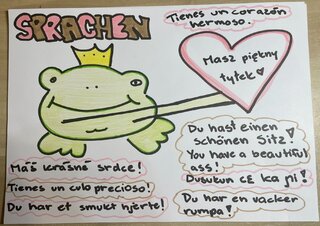 SPRACHEN
Tienes un corazón
hermoso.
Masz piękny
tyłek!
Du hast einen
schönen Sitz!
You have a beautiful
ass!
Máš krásné srdce!
Tienes un culo precioso!
Du har et smukt hjerte!
Du har en vacker
rumpa!